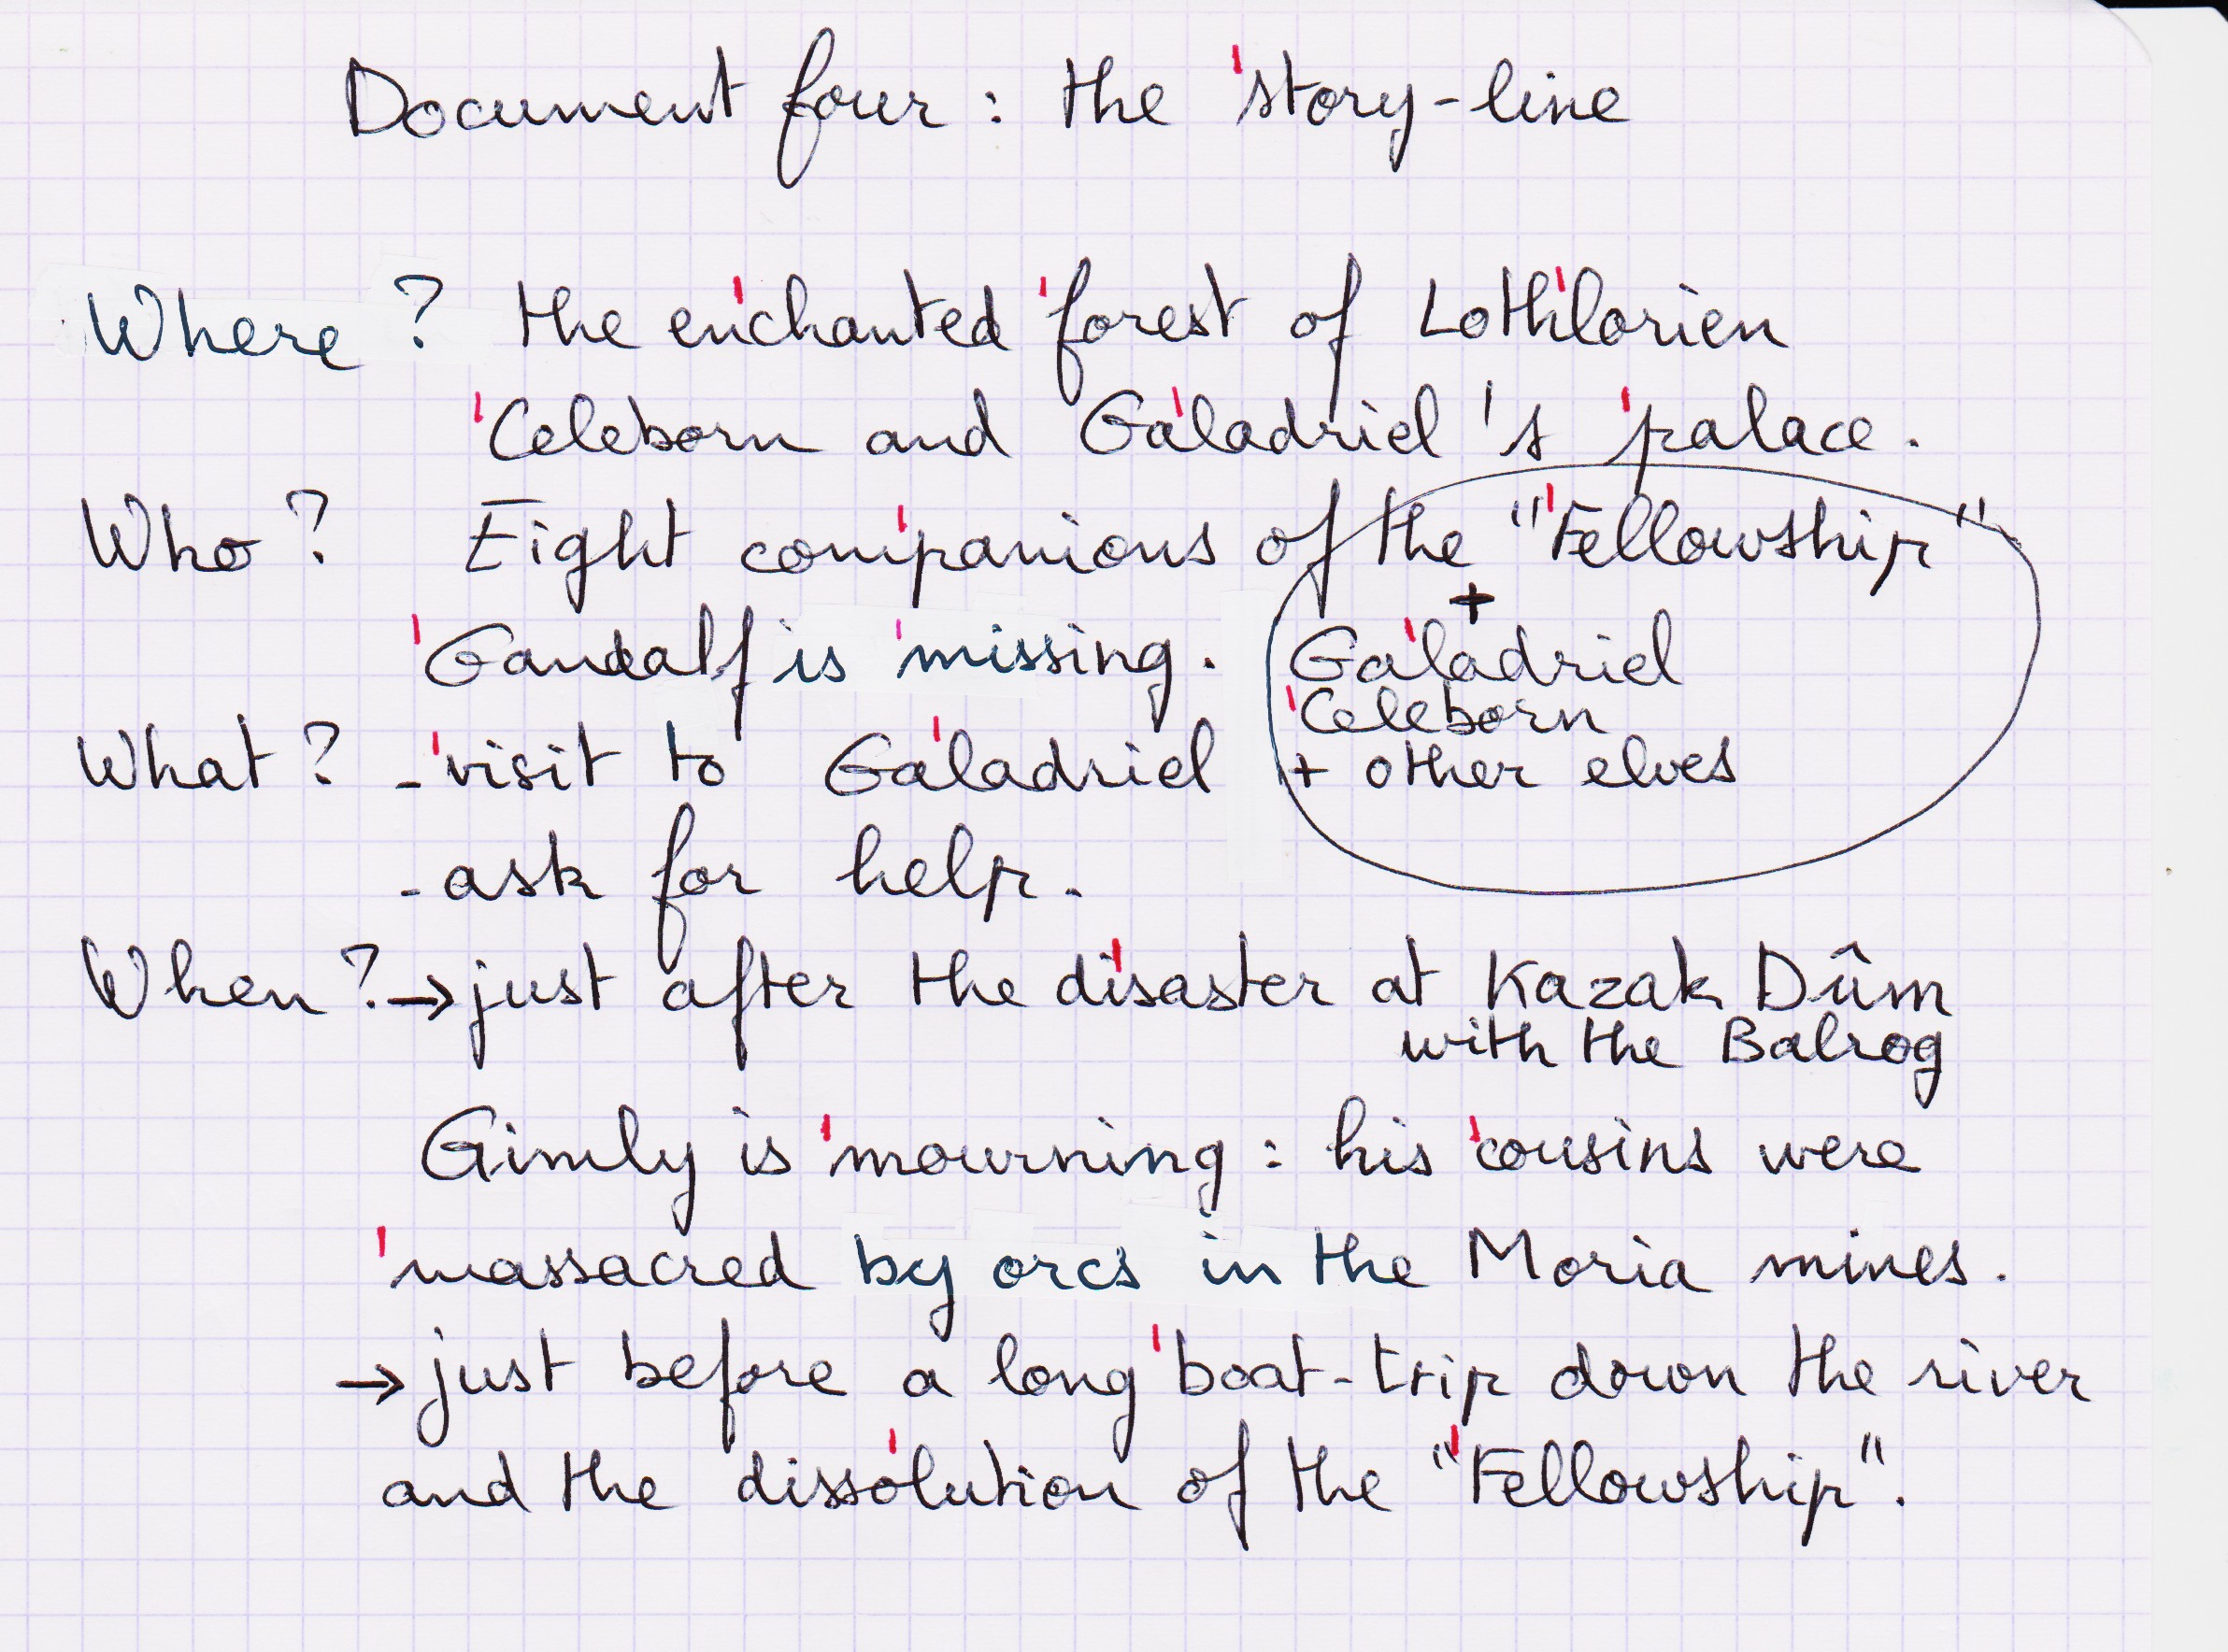 Document four : the 'story-line
Where ? the en'chanted 'forest of Loth'lorien
'Celeborn and Ga'ladriel's 'palace.
Who ? Eight com'panions of the "'Fellowship"
+
'Gandalf is 'missing. Ga'ladriel
'Celeborn
What ? - 'visit to Ga'ladriel + other elves
- ask for help.
When ? → just after the di'saster at Kazak Dûm
with the Balrog
Gimly is 'mourning : his 'cousins were
'massacred by orcs in the Moria mines.
→ just before a long 'boat-trip down the river
and the disso'lution of the "'Fellowship".